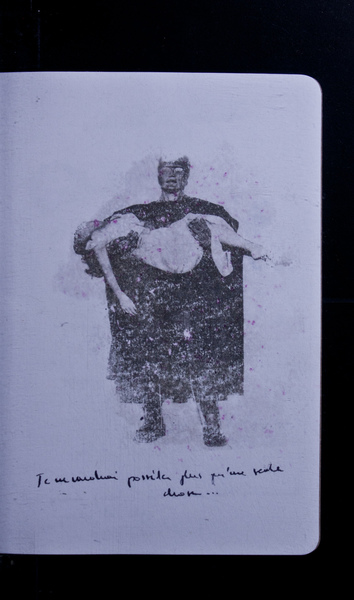 Je ne voudrai posséder plus qu'une seule
chose...